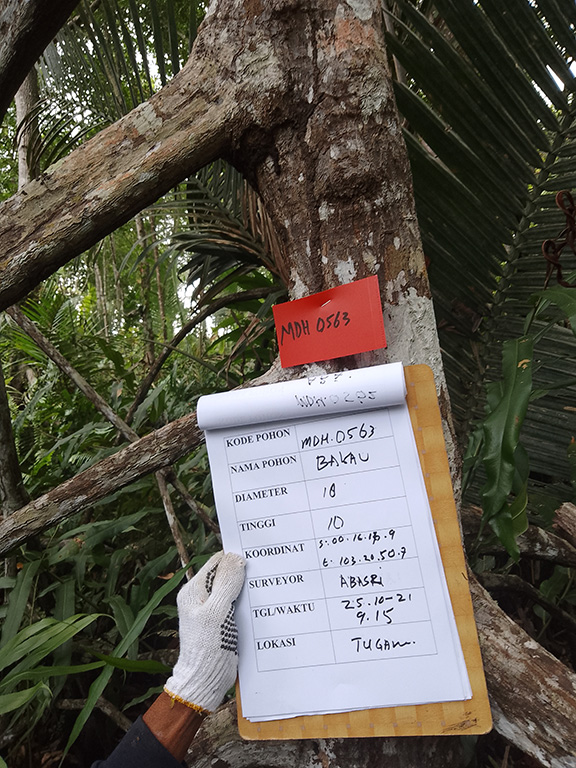 MDH 0563
KODE POHON MDH.0563
NAMA POHON BAKAU
DIAMETER 18
TINGGI 10
KOORDINAT S:00.16.18.9
E: 103.20.50.7
SURVEYOR ABASRI
TGL/WAKTU 25.10-21
9.15
LOKASI